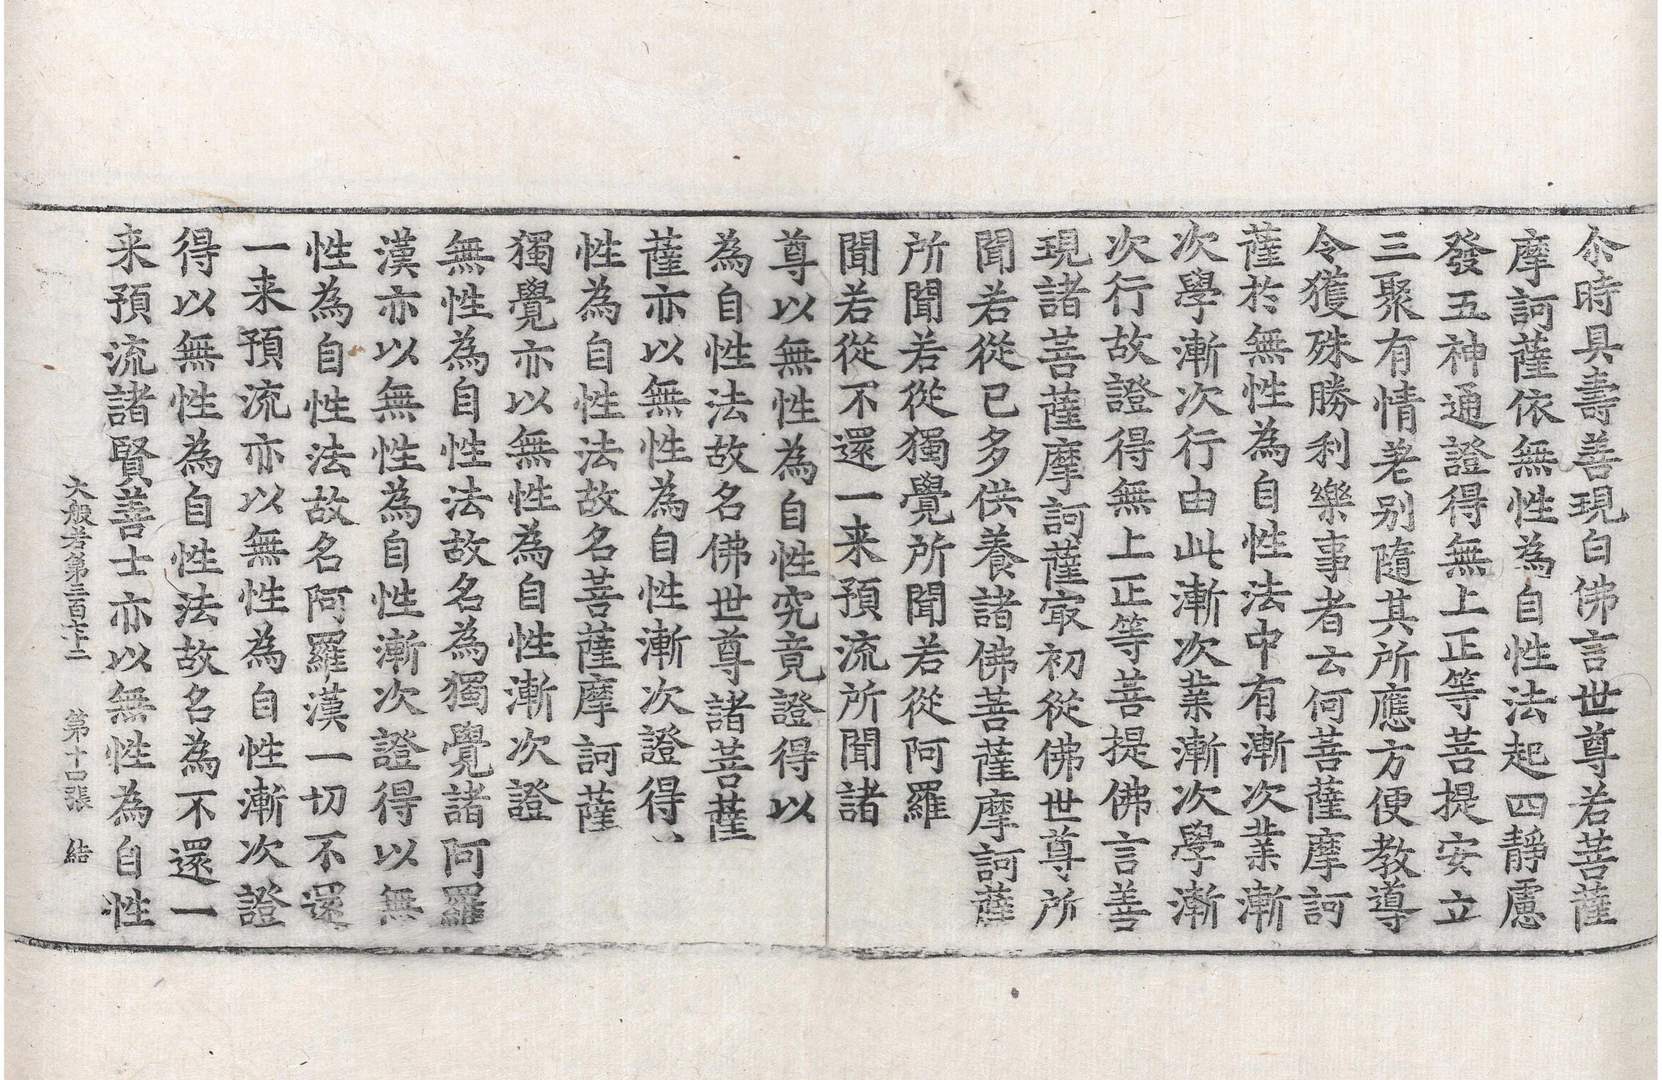 尒時具壽善現白佛言世尊若菩薩
摩訶薩依無性為自性法起四靜慮
發五神通證得無上正等菩提安立
三聚有情差别隨其所應方便教導
令獲殊勝利樂事者云何菩薩摩訶
薩於無性為自性法中有漸次業漸
次學漸次行由此漸次業漸次學漸
次行故證得無上正等菩提佛言善
現諸菩薩摩訶薩㝡初從佛世尊所
聞若從已多供養諸佛菩薩摩訶薩
所聞若從獨覺所聞若從阿羅
聞若從不還一来預流所聞諸
尊以無性為自性究竟證得以
為自性法故名佛世尊諸菩薩
薩亦以無性為自性漸次證得
性為自性法故名菩薩摩訶薩
獨覺亦以無性為自性漸次證
無性為自性法故名為獨覺諸阿羅
漢亦以無性為自性漸次證得以無
性為自性法故名阿羅漢一切不還
一来預流亦以無性為自性漸次證
得以無性為自性法故名為不還一
来預流諸賢善士亦以無性為自性
大般若第三百七十二 第十四張 結